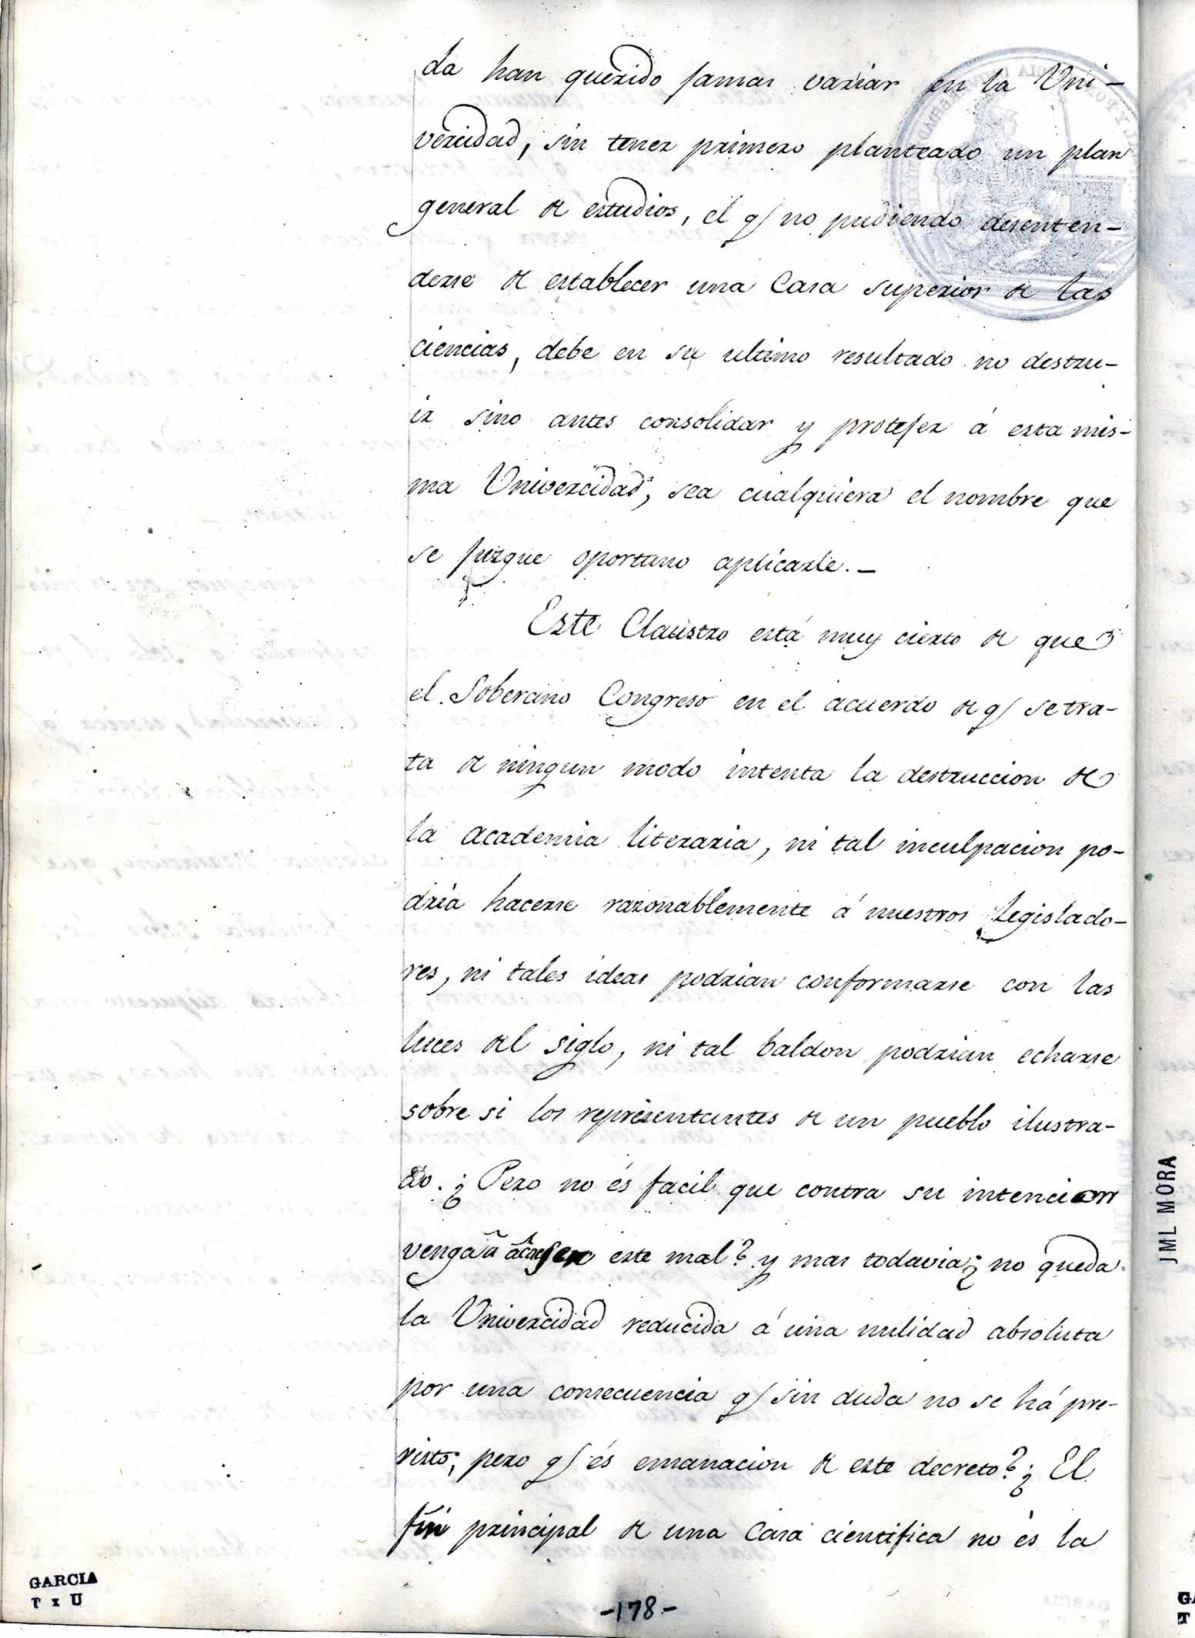 da han querido jamas variar en la Uni-
vercidad, sin tener primero planteado un plan
general de estudios, el q/ no pudiendo desenten-
derse de establecer una Casa superior de las
ciencias, debe en su ultimo resultado no destru-
ir sino antes consolidar y protejer á esta mis-
ma Univercidad, sea cualquiera el nombre que
se juzgue oportuno aplicarle. -
Este Claustro está muy cierto de que
el Soberano Congreso en el acuerdo de q/ se tra-
ta de ningun modo intenta la destruccion de
la academia literaria, ni tal inculpacion po-
dria hacerse razonablemente á nuestros Legislado-
res, ni tales ideas podrian conformarse con las
luces del siglo, ni tal baldon podrian echarse
sobre si los representantes de un pueblo ilustra-
do. ¿ Pero no és facil que contra su intencion
venga á este mal? y mas todavia ¿ no queda
la Univercidad reducida á una nulidad absoluta
por una consecuencia q/ sin duda no se há pre-
visto; pero q/ és emanacion de este decreto? ¿ El
fin principal de una Casa cientifica no és la
-178-
GARCIA
T x U
JML MORA